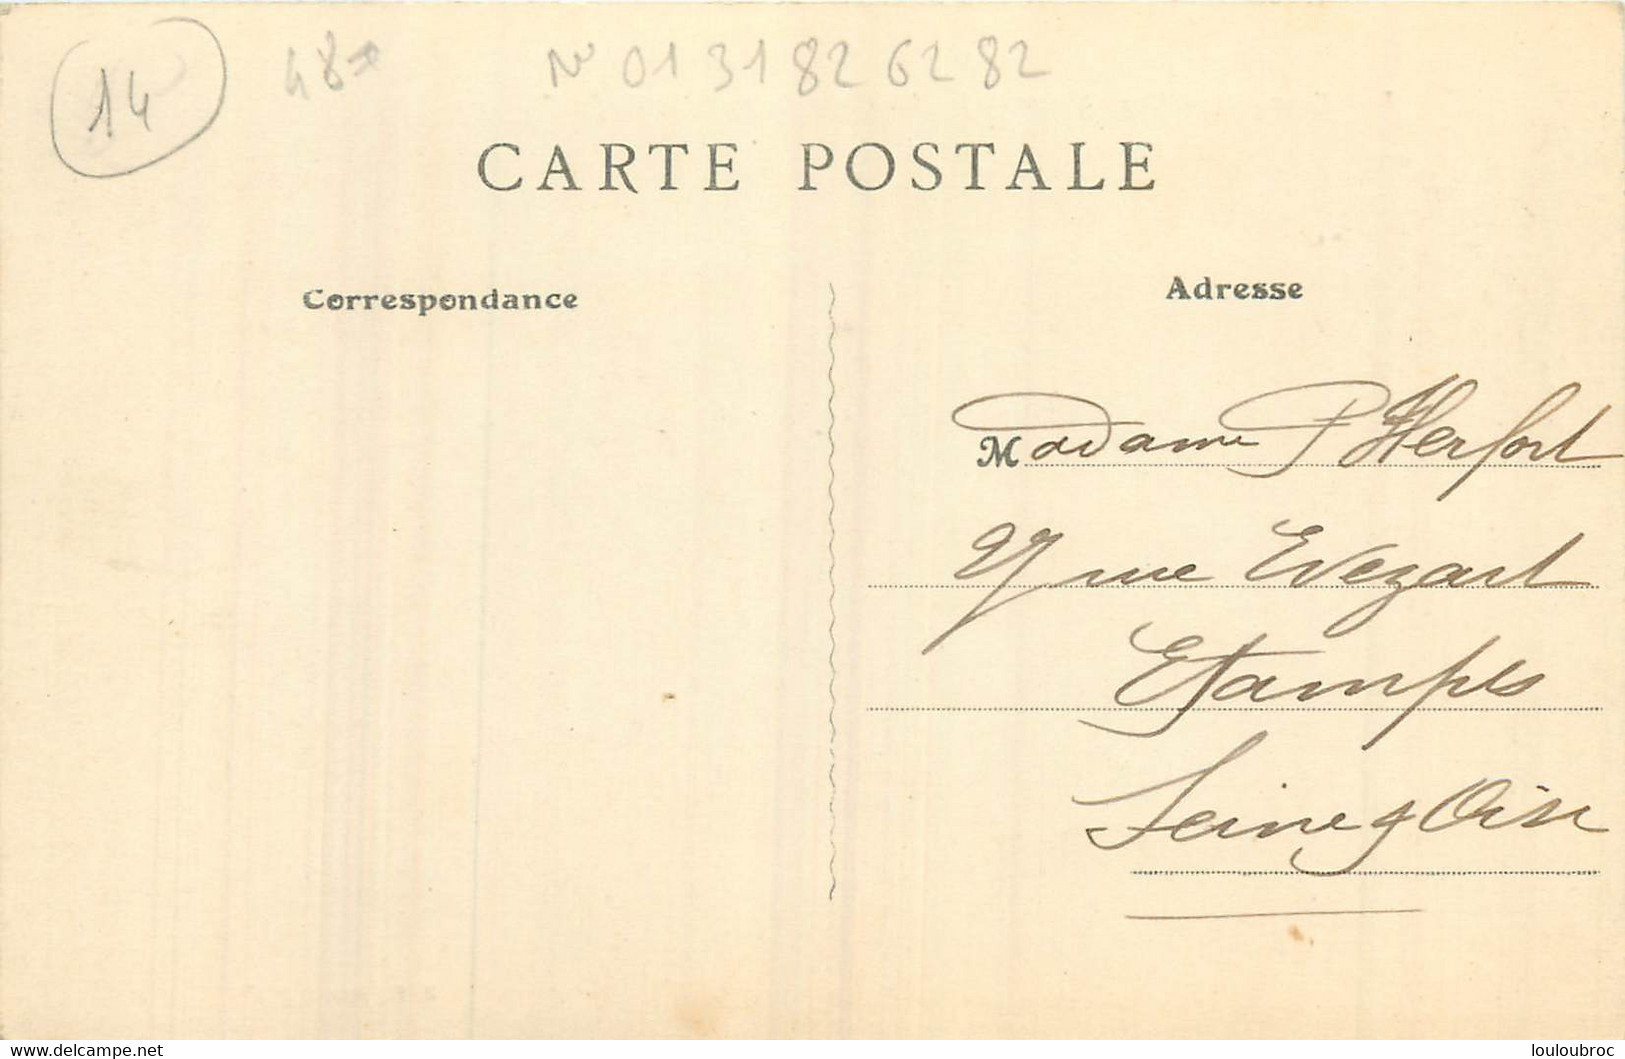 14
48
N° 0131826282
CARTE POSTALE
Correspondance
Adresse
Madame P Herfort
rue Evezard
Etampes
Seine & Oise
www.delcampe.net
louloubroc